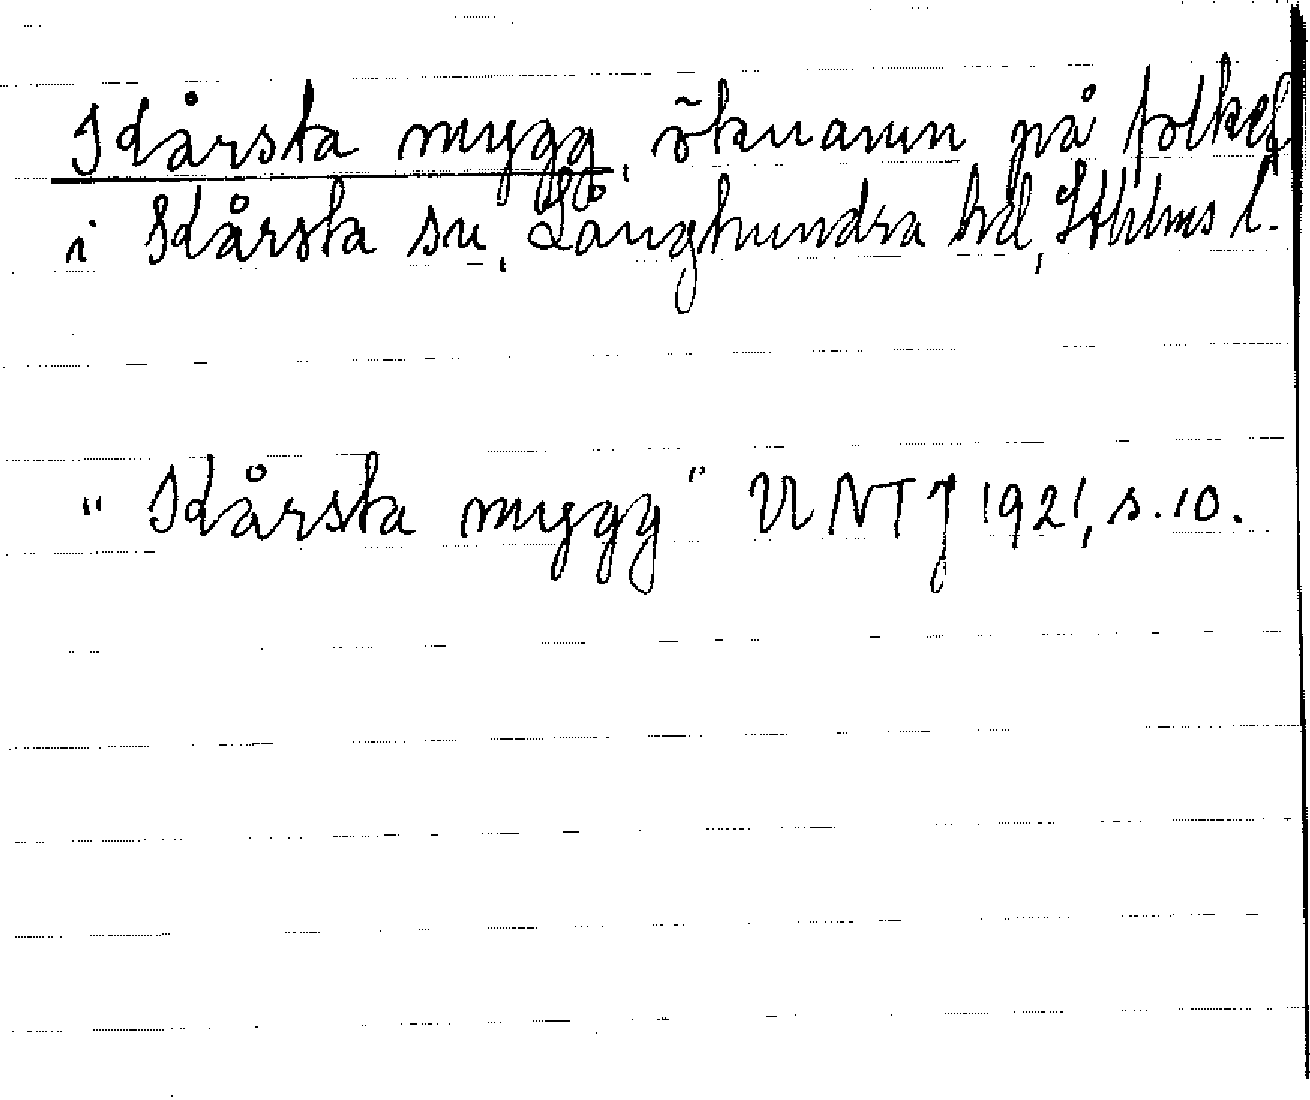 Kårsta mygg, öknamn på folket
i Kårsta sn, Långhundra hd, Sthlms l.
" Kårsta mygg " UNTJ 1921, s. 10.